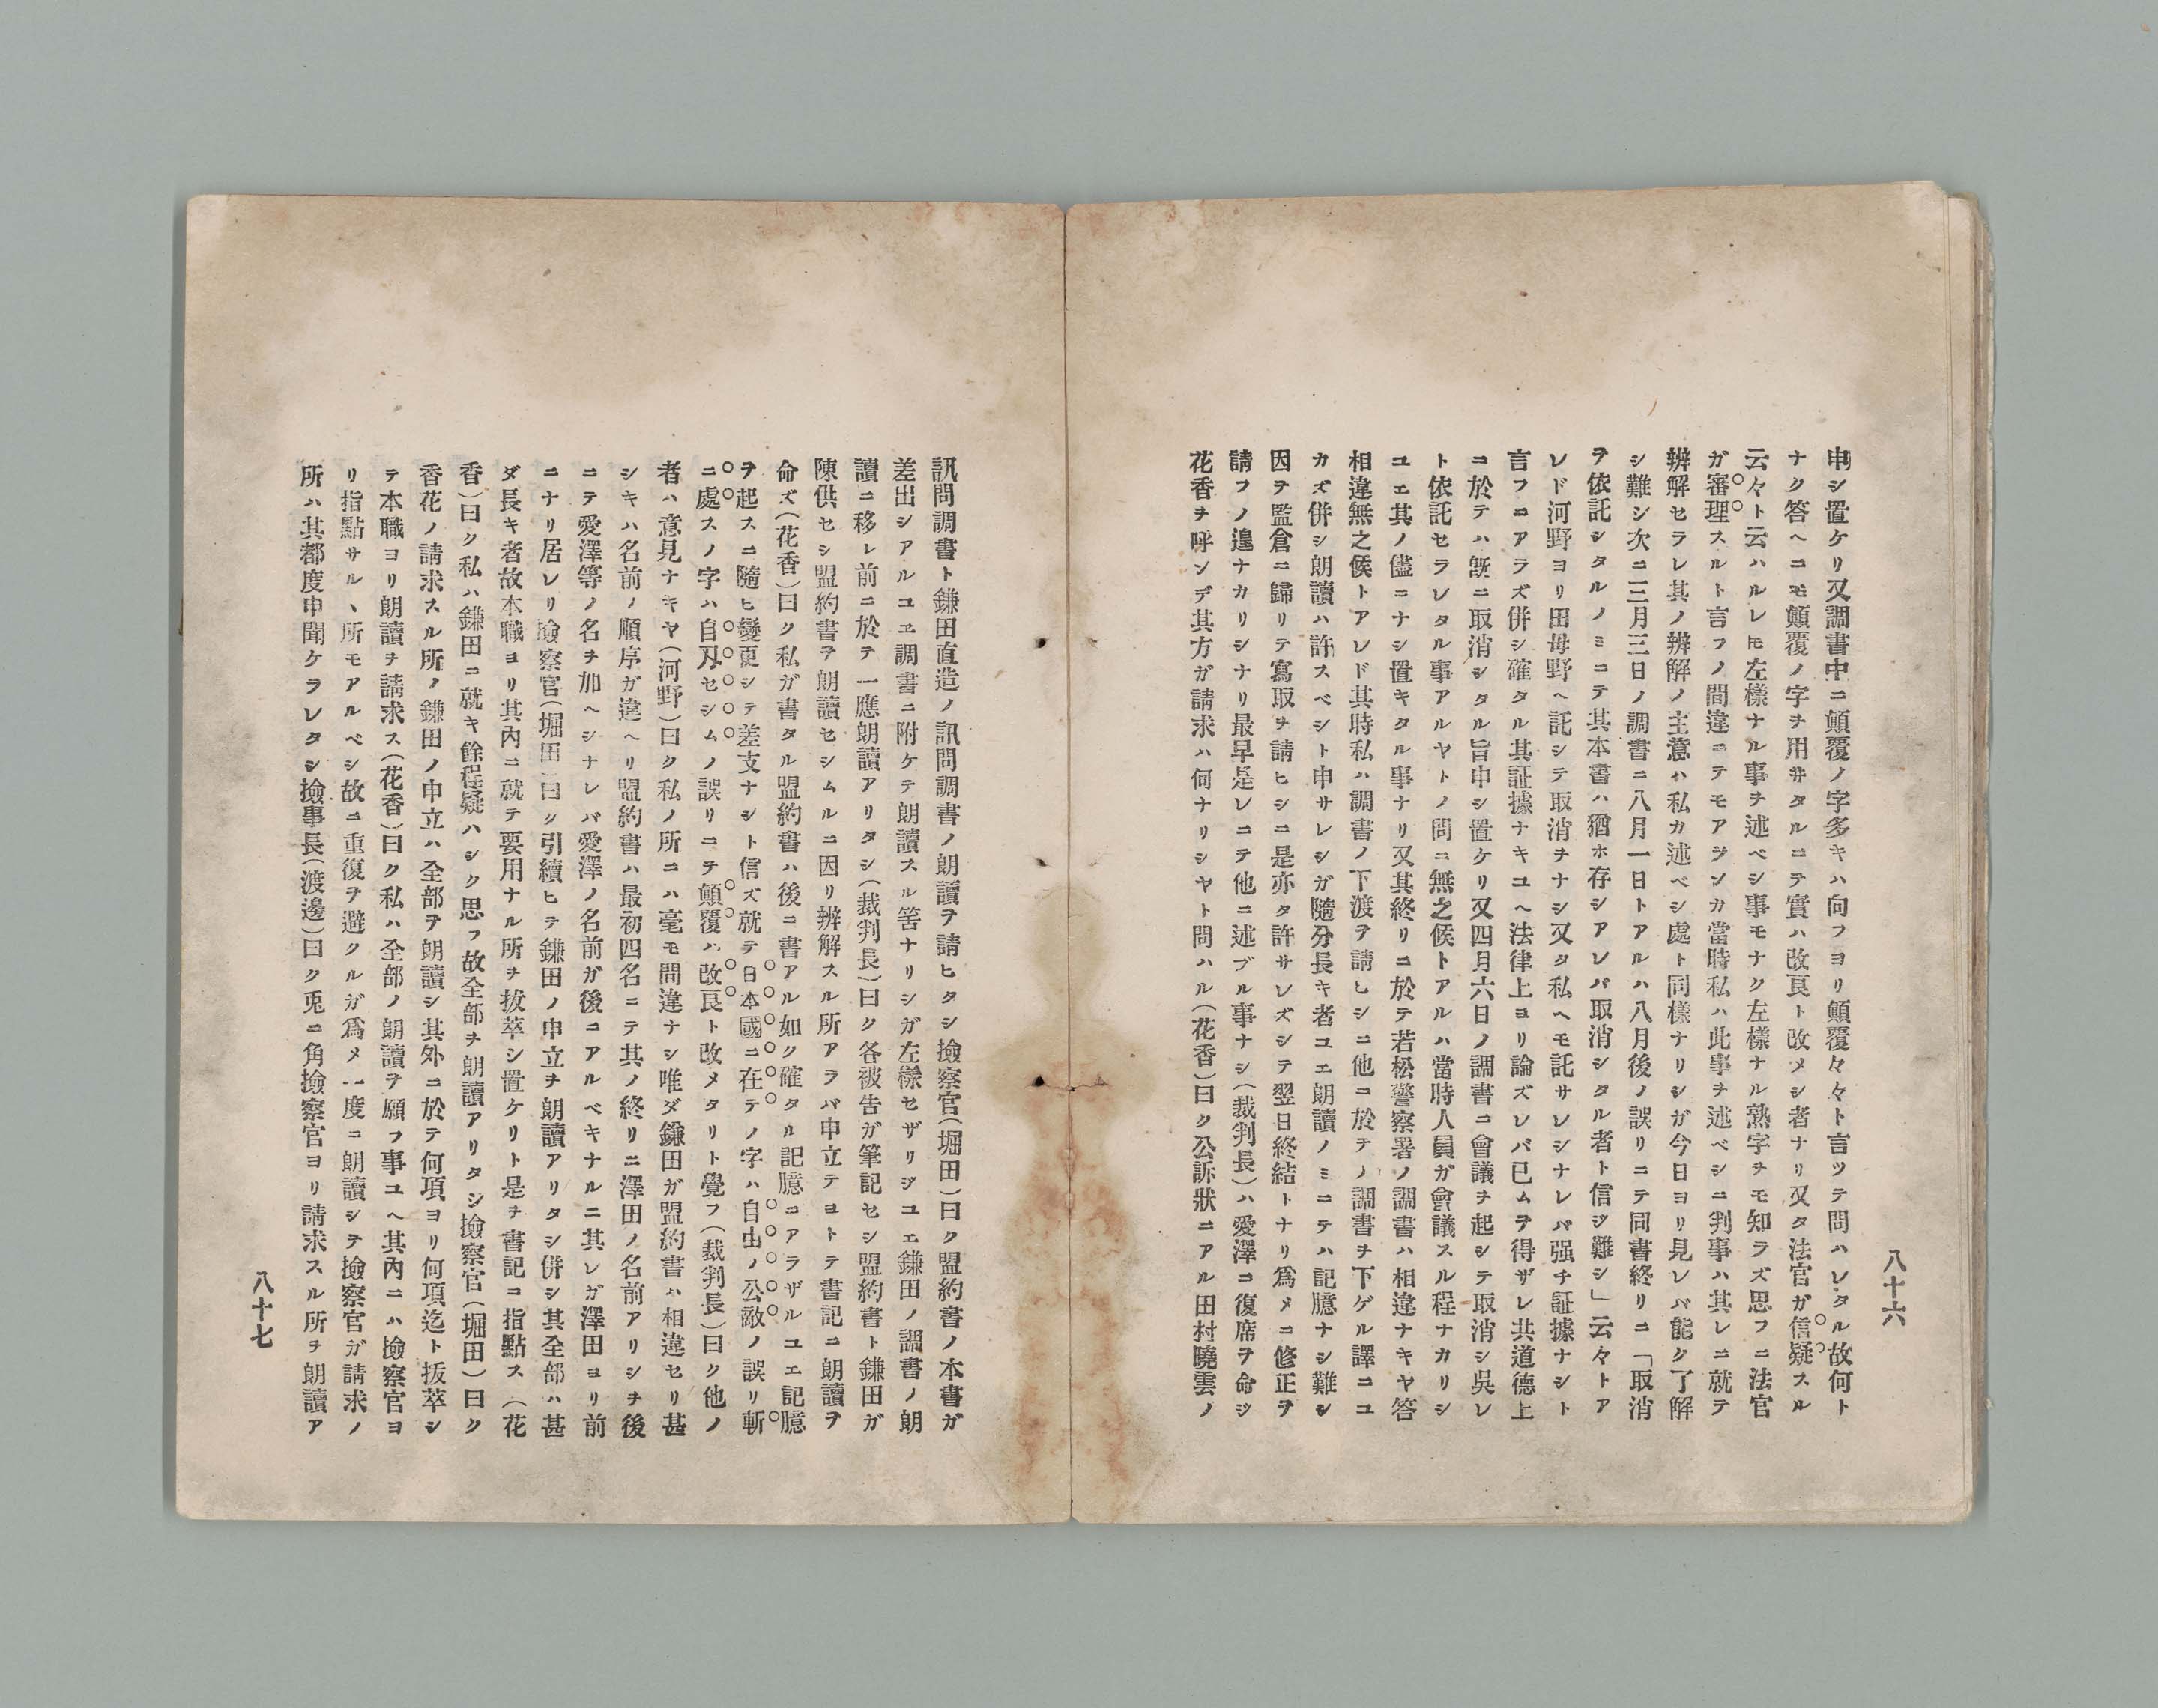 八十六
申シ置ケリ又調書中ニ顛覆ノ字多キハ向フヨリ顛覆々々ト言ツテ問ハレタル故何ト
ナク答ヘニモ顛覆ノ字ヲ用井タルニテ實ハ改良ト改メシ者ナリ又タ法官ガ信疑スル
云々ト云ハルレモ左樣ナル事ヲ述ベシ事モナク左樣ナル熟字ヲモ知ラズ思フニ法官
ガ審理スルト言フノ間違ニテモアランカ當時私ハ此事ヲ述ベシニ判事ハ其レニ就テ
辨解セラレ其ノ辨解ノ主意ハ私カ述ベシ處ト同樣ナリシガ今日ヨリ見レバ能ク了解
シ難シ次ニ三月三日ノ調書ニ八月一日トアルハ八月後ノ誤リニテ同書終リニ「取消
ヲ依託シタルノミニテ其本書ハ猶ホ存シアレバ取消シタル者ト信ジ難シ」云々トア
レド河野ヨリ田母野ヘ託シテ取消ヲナシ又タ私ヘモ託サレシナレバ强チ証據ナシト
言フコアラズ併シ確タル其証據ナキユヘ法律上ヨリ論ズレバ已ムヲ得ザレ共道德上
ニ於テハ旣ニ取消シタル旨申シ置ケリ又四月六日ノ調書ニ會議ヲ起シテ取消シ吳レ
ト依託セラレタル事アルヤトノ問ニ無之候トアルハ當時人員ガ會議スル程ナカリシ
ユエ其ノ儘ニナシ置キタル事ナリ又其終リニ於テ若松警察署ノ調書ハ相違ナキヤ答
相違無之候トアレド其時私ハ調書ノ下渡ヲ請ヒシニ他ニ於テノ調書ヲ下ゲル譯ニユ
カズ併シ朗讀ハ許スベシト申サレシガ隨分長キ者ユエ朗讀ノミニテハ記臆ナシ難シ
因テ監倉ニ歸リテ寫取ヲ請ヒシニ是亦タ許サレズシテ翌日終結トナリ爲メニ修正ヲ
請フノ遑ナカリシナリ最早是レニテ他ニ述ブル事ナシ(裁判長)ハ愛澤ニ復席ヲ命ジ
花香ヲ呼ンデ其方ガ請求ハ何ナリシヤト問ハル(花香)曰ク公訴狀ニアル田村曉雲ノ
訊問調書ト鎌田直造ノ訊問調書ノ朗讀ヲ請ヒタシ撿察官(堀田)曰ク盟約書ノ本書ガ
差出シアルユヱ調書ニ附ケテ朗讀スル筈ナリシガ左樣セザリシユエ鎌田ノ調書ノ朗
讀ニ移レ前ニ於テ一應朗讀アリタシ(裁判長)曰ク各被告ガ筆記セシ盟約書ト鎌田ガ
陳供セシ盟約書ヲ朗讀セシムルニ因リ辨解スル所アラバ申立テヨトテ書記ニ朗讀ヲ
命ズ(花香)曰ク私ガ書タル盟約書ハ後ニ書アル如ク確タル記臆ニアラザルユエ記臆
ヲ起スニ隨ヒ變更シテ差支ナシト信ズ就テ日本國ニ在テノ字ハ自由ノ公敵ノ誤リ斬
ニ處スノ字ハ自刄セシムノ誤リニテ顛覆ハ改良ト改メタリト覺フ(裁判長)曰ク他ノ
者ハ意見ナキヤ(河野)曰ク私ノ所ニハ毫モ間違ナシ唯ダ鎌田ガ盟約書ハ相違セリ甚
シキハ名前ノ順序ガ違ヘリ盟約書ハ最初四名ニテ其ノ終リニ澤田ノ名前アリシヲ後
ニテ愛澤等ノ名ヲ加ヘシナレバ愛澤ノ名前ガ後ニアルベキナルニ其レガ澤田ヨリ前
ニナリ居レリ撿察官(堀田)曰ク引續ヒテ鎌田ノ申立ヲ朗讀アリタシ併シ其全部ハ甚
ダ長キ者故本職ヨリ其內ニ就テ要用ナル所ヲ拔萃シ置ケリト是ヲ書記ニ指點ス(花
香)曰ク私ハ鎌田ニ就キ餘程疑ハシク思フ故全部ヲ朗讀アリタシ撿察官(堀田)曰ク
香花ノ請求スル所ノ鎌田ノ申立ハ全部ヲ朗讀シ其外ニ於テ何項ヨリ何項迄ト拔萃シ
テ本職ヨリ朗讀ヲ請求ス(花香)曰ク私ハ全部ノ朗讀ヲ願フ事ユヘ其內ニハ撿察官ヨ
リ指點サルヽ所モアルベシ故ニ重復ヲ避クルガ爲メ一度ニ朗讀シテ撿察官ガ請求ノ
所ハ其都度申聞ケラレタシ撿事長(渡邊)曰ク兎ニ角撿察官ヨリ請求スル所ヲ朗讀ア
八十七